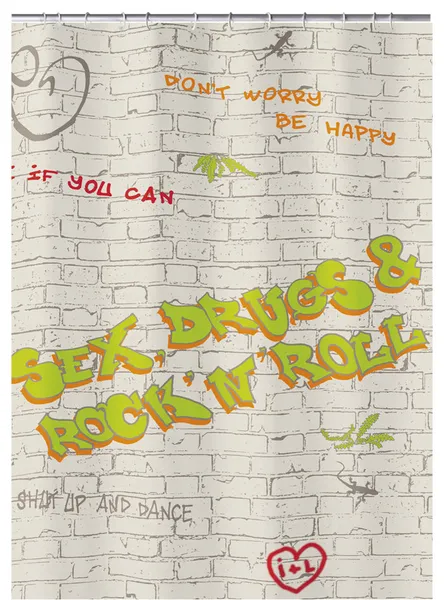 DON'T WORRY
BE HAPPY
IF YOU CAN
SEX, DRUGS &
ROCK 'N' ROLL
SHUT UP AND DANCE
i+L